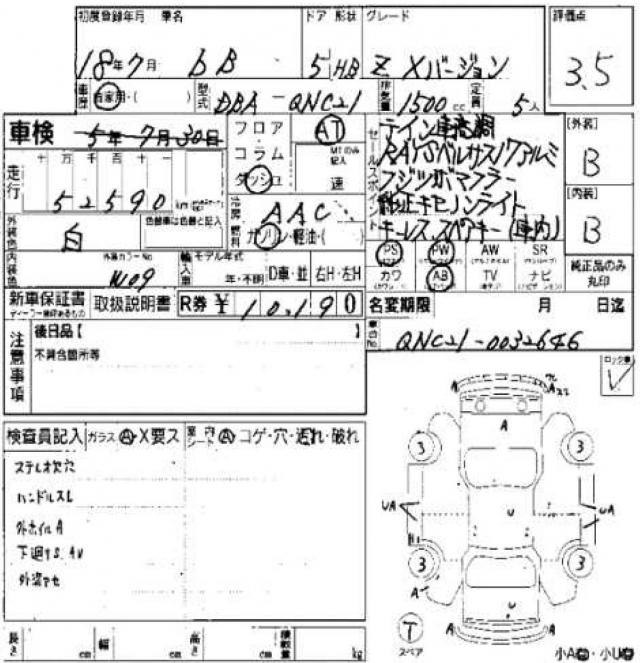 初度登録年月 車名 ドア 形状 グレード 評価点
18年7月 bB 5 HB Z Xバージョン 3.5
車歴 自家用・( ) 型式 DBA-QNC21 排気量 1500cc 定員 5人
車検 5年7月30日 フロア AT
コラム MTのみ記入
ダッシュ 速
走行 十 万 千 百 十
52590 km
セールスポイント
RAYSベルサス17アルミ
フジツボマフラー
純正キセノンライト
キーレス、スペアキー(車内)
[外装] B
[内装] B
純正品のみ丸印
冷房 AAC
燃料 ガソリン・軽油・( )
外装色 白 色替車は色番と記入
内装色 外装カラーNo W09
輸入車 モデル年式 年・不明 D車・並 右H・左H
PS PW AW SR
カワ AB TV ナビ
新車保証書 取扱説明書 R券 ¥10,190
ディーラー検印あるもの
名変期限 月 日迄
車台No. QNC21-0032646
注意事項 後日品【 】
不具合箇所等
検査員記入 ガラス A・X要ス 室内シート A コゲ・穴・汚れ・破れ
ステレオ欠穴
ハンドルスレ
外ホイルA
下廻りS.AU
A A
A
3 3
UA U UA
3 3
A
U
A A
T
スペア
小A・小U
長さ cm 幅 cm 高さ cm 積載量 kg